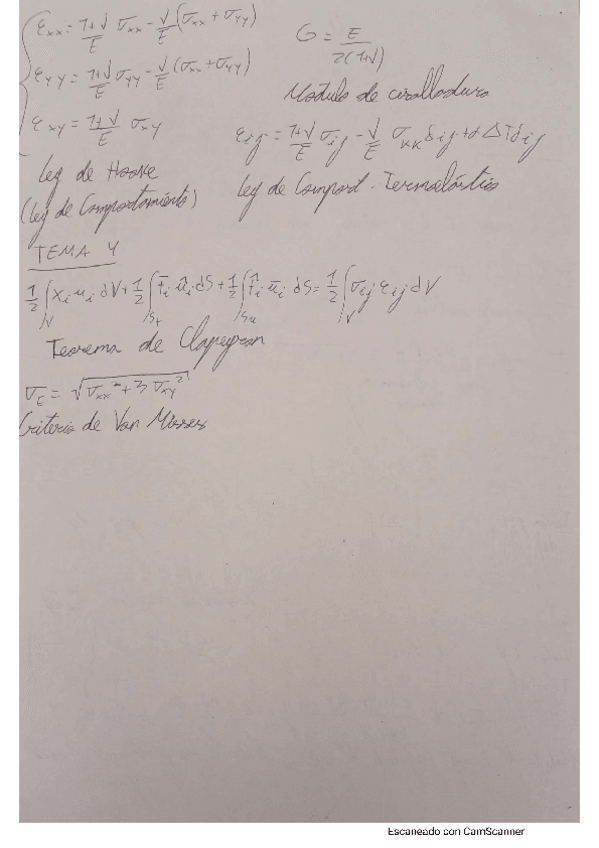 εxx = 1+ν/E σxx - ν/E (σxx + σyy)
εyy = 1+ν/E σyy - ν/E (σxx + σyy)
εxy = 1+ν/E σxy
Ley de Hooke
(Ley de Comportamiento)
G = E/2(1+ν)
Módulo de cizalladura
εij = 1+ν/E σij - ν/E σkk δij + α ΔT δij
Ley de Comport. Termoelástico
TEMA 4
1/2 ∫V Xi ui dV + 1/2 ∫St t̄i ûi dS + 1/2 ∫Su t̂i ūi dS = 1/2 ∫V σij εij dV
Teorema de Clapeyron
σE = √(σxx² + 3 σxy²)
Criterio de Von Misses
Escaneado con CamScanner